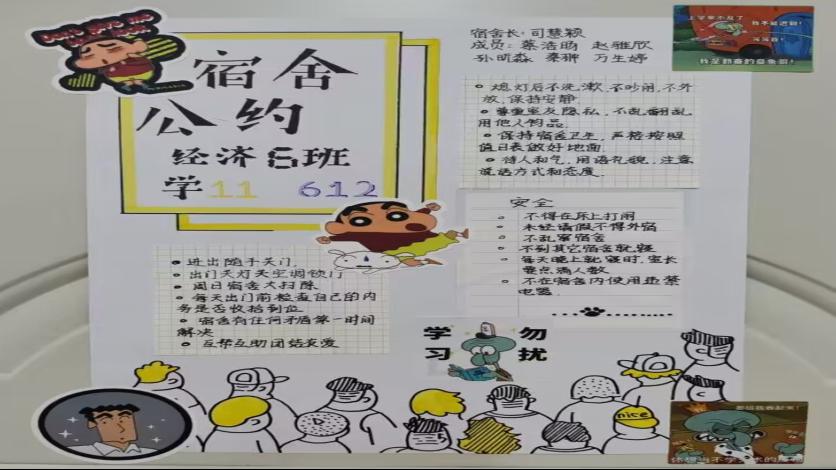 宿舍
公约
经济6班
学11 612
宿舍长:司慧颖
成员:蔡浩旸 赵雅欣
孙昕淼 秦翀 万生婷
熄灯后不洗漱,不吵闹,不外
放,保持安静.
尊重室友隐私,不乱翻乱
用他人物品.
保持宿舍卫生,严格按照
值日表做好地面.
待人和气,用语礼貌,注意
说话方式和态度.
安全
不得在床上打闹
未经请假不得外宿
不乱窜宿舍
不到其它宿舍就寝
每天晚上就寝时,室长
要点满人数
不在宿舍内使用违禁
电器.
进出随手关门.
出门关灯关空调锁门
周日宿舍大扫除
每天出门前检查自己的内
务是否收拾到位
宿舍有任何矛盾第一时间
解决
互帮互助团结友爱
学习
勿扰
nice
我不能迟到!
我是勤奋的章鱼哥!